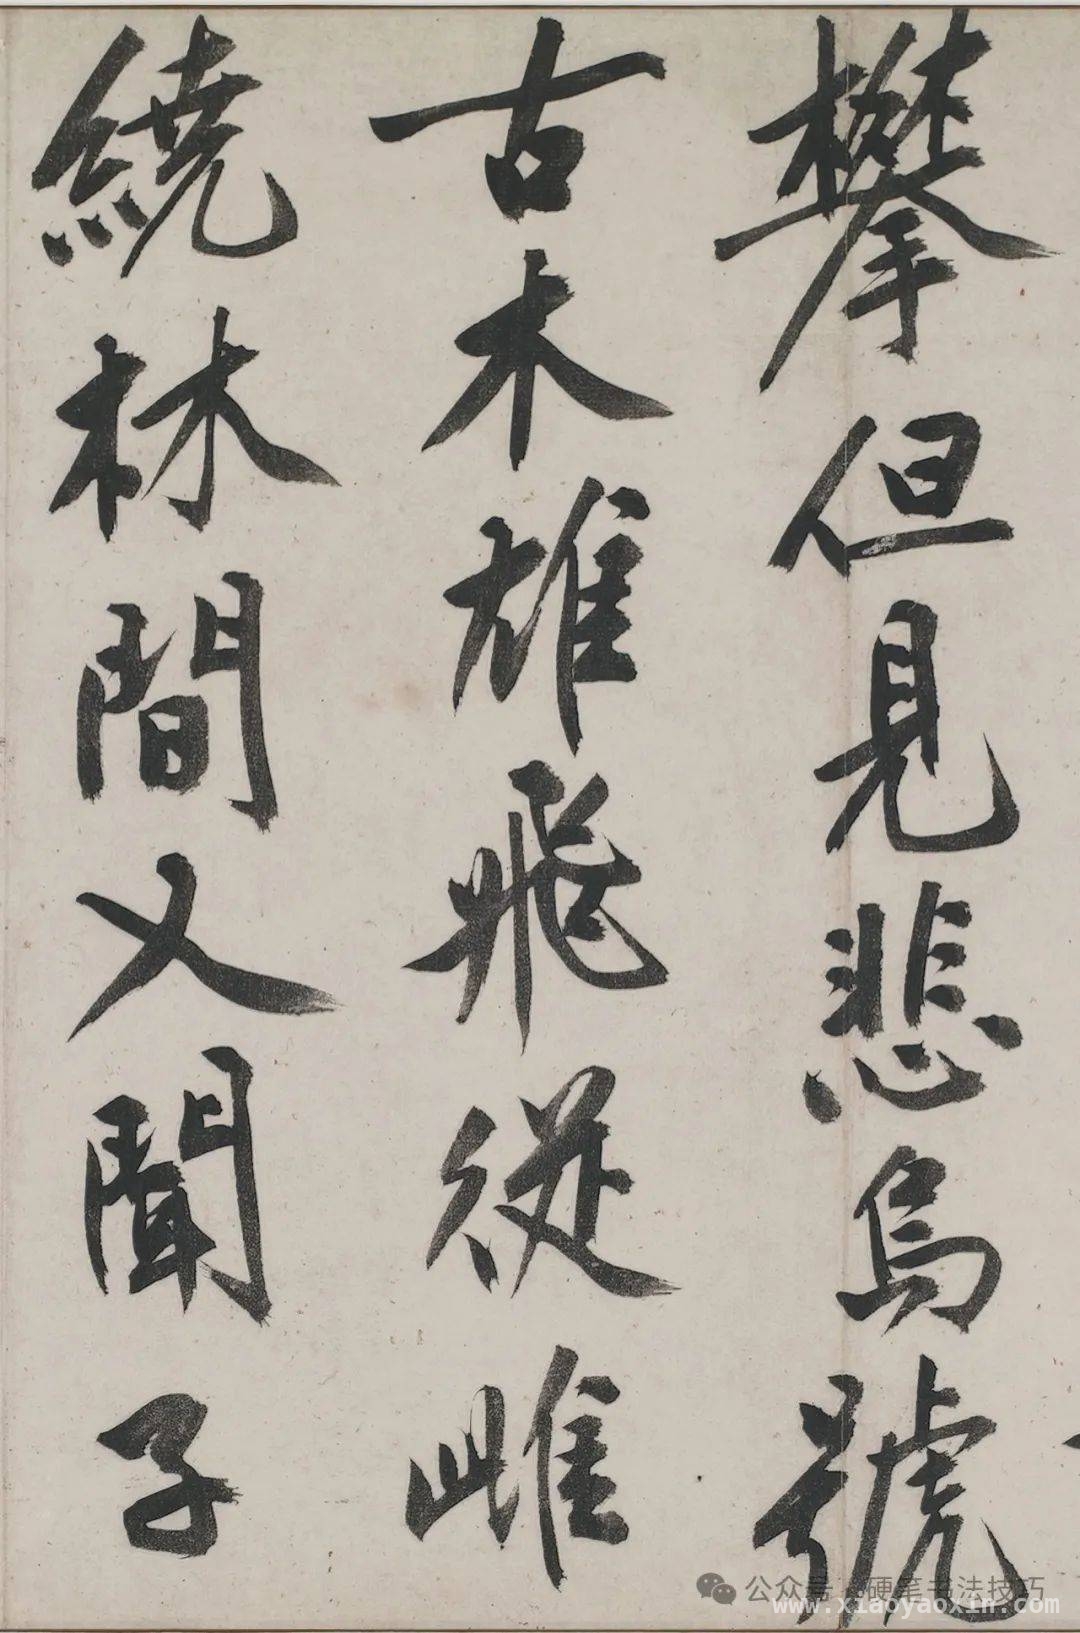 攀但見悲烏號
古木雄飛從雌
繞林間又聞子
公众号 硬笔书法技巧
www.xiaoyaoxin.com